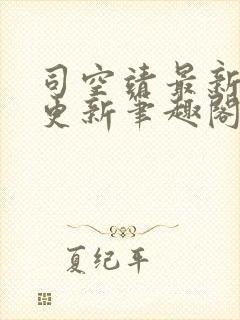 司空靖最新
更新笔趣阁
夏纪年